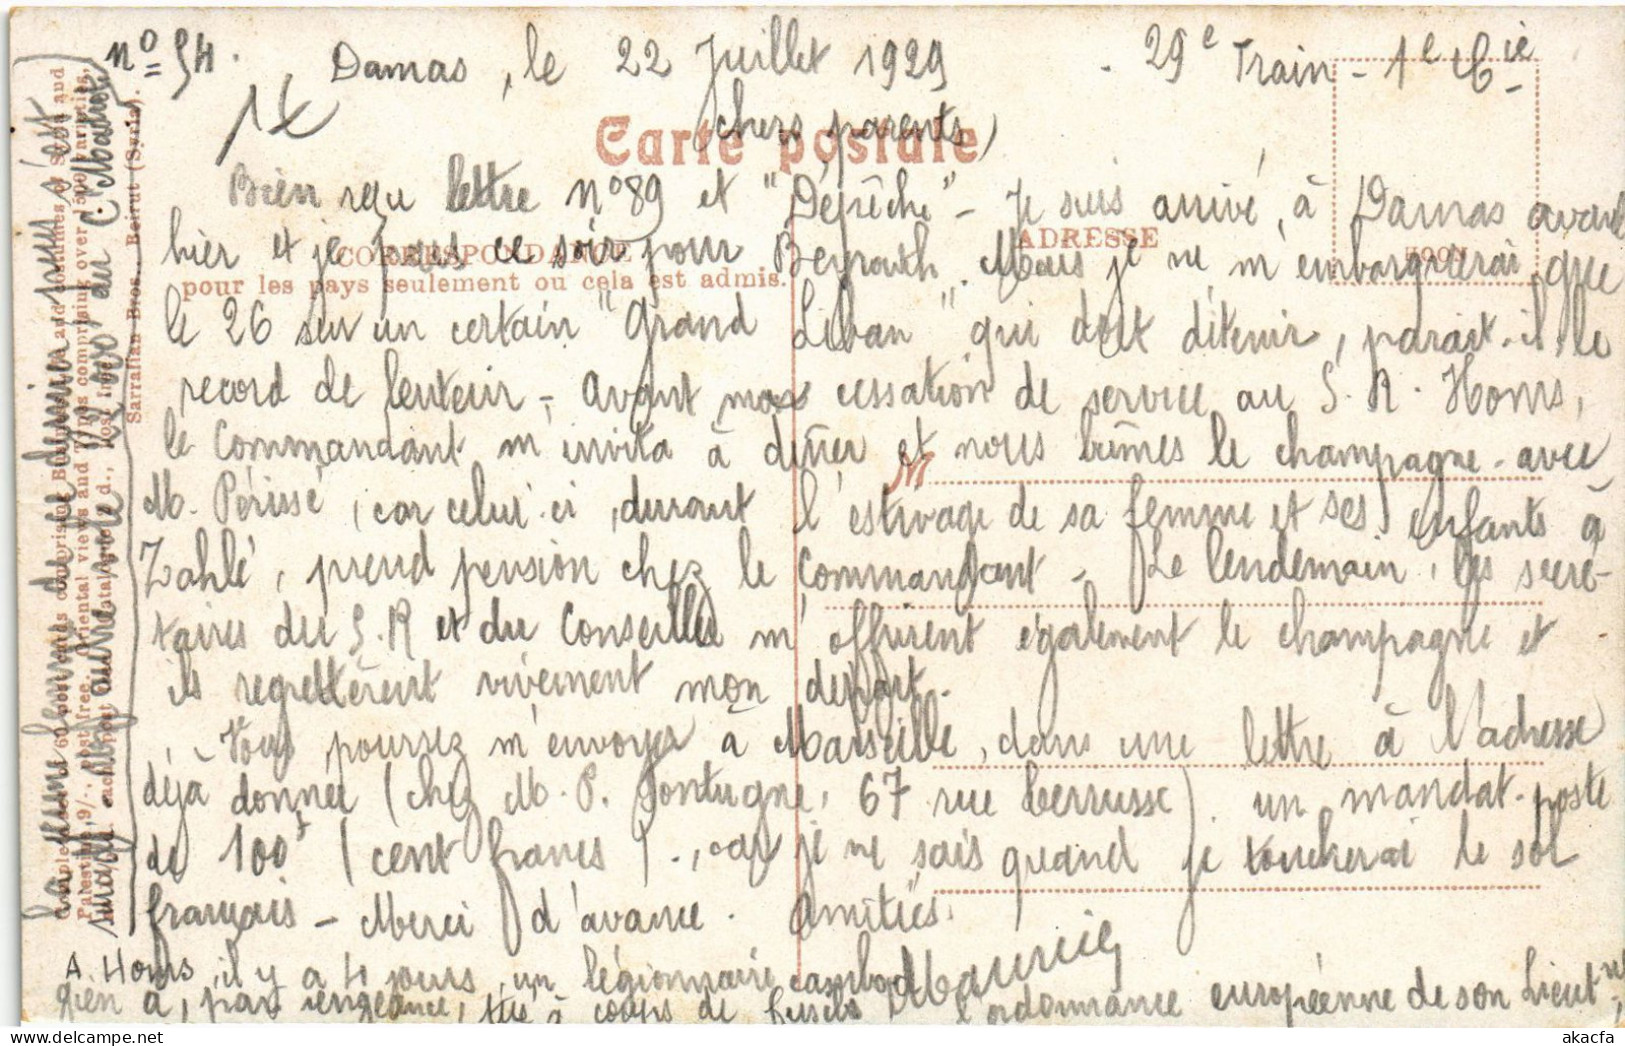 n° 54. Damas, le 22 Juillet 1929 - 29e Train - 1e Cie
Carte postale
chers parents,
Bien reçu lettre n° 89 et "Dépêche" - Je suis arrivé, à Damas avant
hier et je pars ce soir pour Beyrouth. Mais je ne m'embarquerai que
CORRESPONDANCE
ADRESSE
pour les pays seulement ou cela est admis.
le 26 sur un certain "Grand Liban" qui doit détenir, parait-il, le
record de lenteur - Avant ma cessation de service au S.R. Homs,
le Commandant m'invita à dîner et nous bûmes le champagne avec
M
M. Périssé, car celui-ci, durant l'estivage de sa femme et ses enfants à
Zahlé, prend pension chez le Commandant - Le lendemain, les secré-
taires du S.R et du Conseiller m'offrirent également le champagne et
ils regrettèrent vivement mon départ.
- Vous pourrez m'envoyer à Marseille, dans une lettre à l'adresse
déjà donnée (chez M. P. Pontugne, 67 rue Terrusse) un mandat-poste
de 100f (cent francs), car je ne sais quand je toucherai le sol
français - Merci d'avance. Amitiés.
Maurice
A Homs, il y a 4 jours, un légionnaire cambod
gien a, par vengeance, tué à coups de fusils l'ordonnance européenne de son Lieutnt
La jeune femme de la dernière vues s'est
Sarrafian Bros., Beirut (Syria).
akacfa.com
akacfa